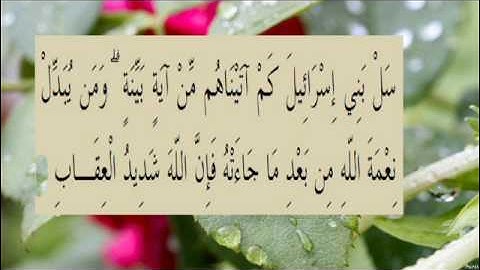 سَلْ بَنِي إِسْرَائِيلَ كَمْ آتَيْنَاهُم مِّنْ آيَةٍ بَيِّنَةٍ ۗ وَمَن يُبَدِّلْ
نِعْمَةَ اللَّهِ مِن بَعْدِ مَا جَاءَتْهُ فَإِنَّ اللَّهَ شَدِيدُ الْعِقَـــابِ